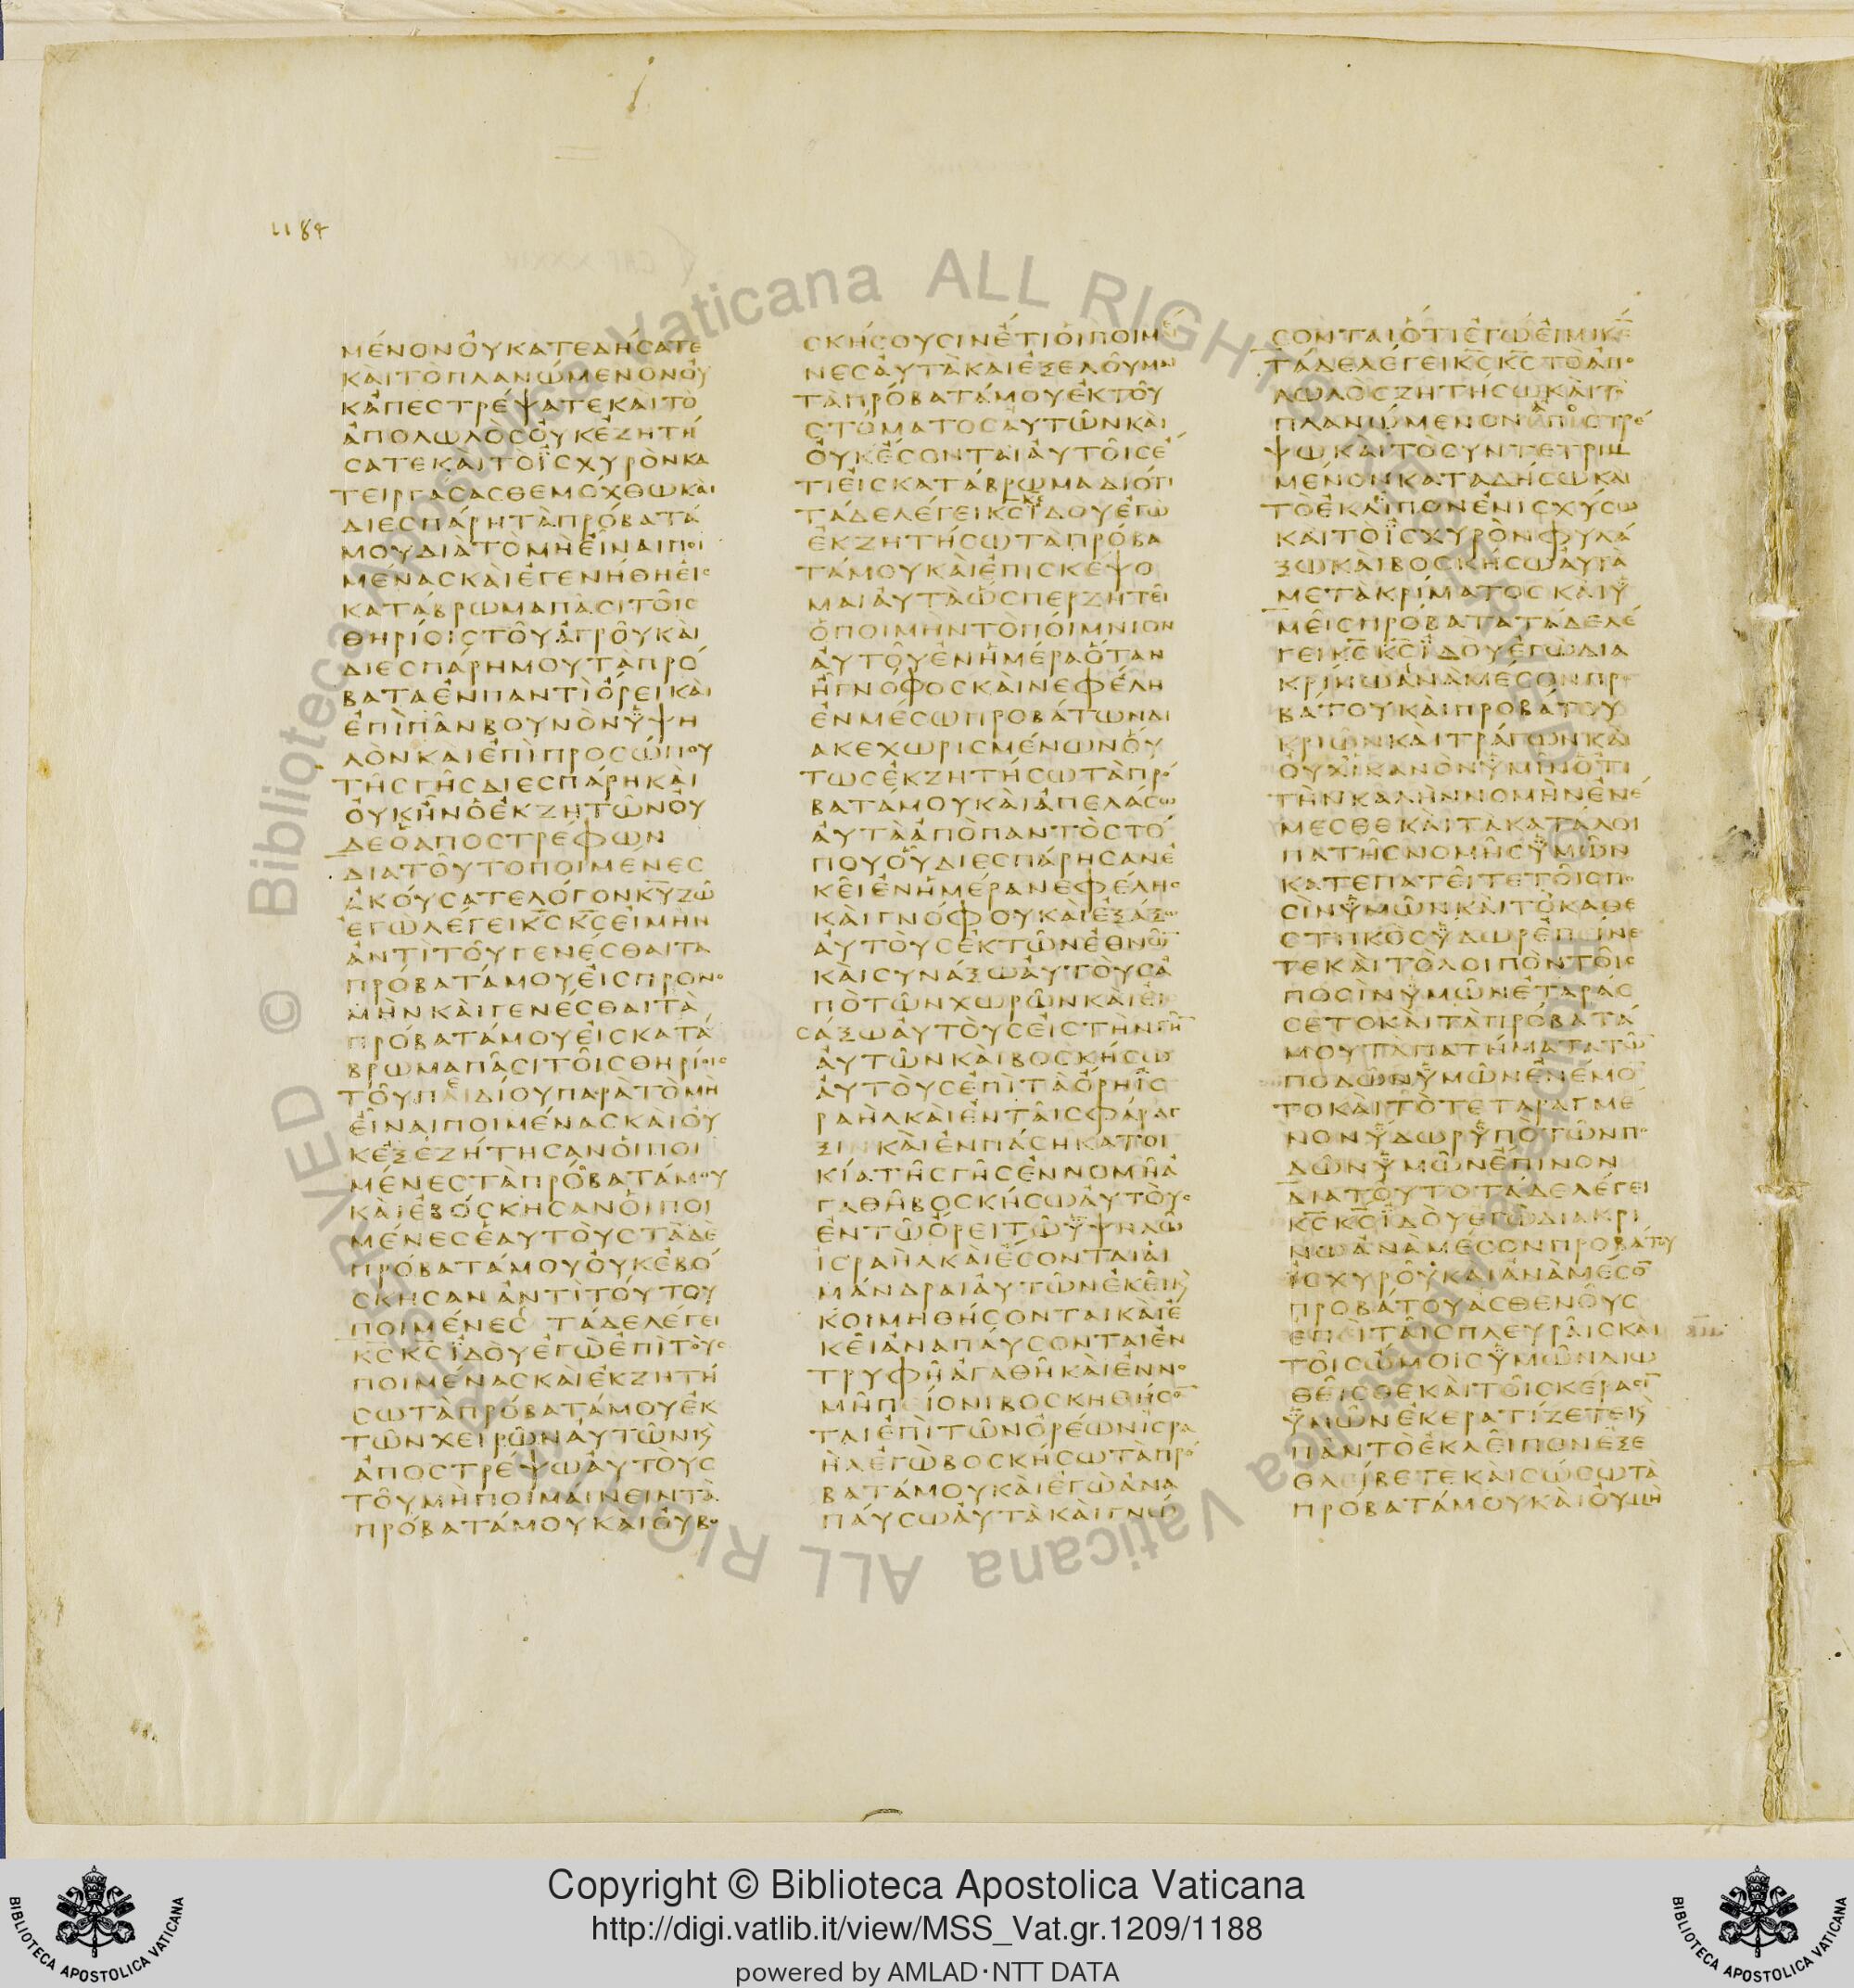 1184
ΜΕΝΟΝΟΥΚΑΤΕΔΗϹΑΤΕ
ΚΑΙΤΟΠΛΑΝΩΜΕΝΟΝΟΥ
ΚΑΠΕϹΤΡΕΨΑΤΕΚΑΙΤΟ
ΑΠΟΛΩΛΟϹΟΥΚΕΖΗΤΗ
ϹΑΤΕΚΑΙΤΟΪϹΧΥΡΟΝΚΑ
ΤΕΙΡΓΑϹΑϹΘΕΜΟΧΘΩΚΑΙ
ΔΙΕϹΠΑΡΗΤΑΠΡΟΒΑΤΑ
ΜΟΥΔΙΑΤΟΜΗΕΙΝΑΙΠΟΙ
ΜΕΝΑϹΚΑΙΕΓΕΝΗΘΗΕΙϹ
ΚΑΤΑΒΡΩΜΑΠΑϹΙΤΟΙϹ
ΘΗΡΙΟΙϹΤΟΥΑΓΡΟΥΚΑΙ
ΔΙΕϹΠΑΡΗΜΟΥΤΑΠΡΟ
ΒΑΤΑΕΝΠΑΝΤΙΟΡΕΙΚΑΙ
ΕΠΙΠΑΝΒΟΥΝΟΝΫΨΗ
ΛΟΝΚΑΙΕΠΙΠΡΟϹΩΠΟΥ
ΤΗϹΓΗϹΔΙΕϹΠΑΡΗΚΑΙ
ΟΥΚΗΝΟΕΚΖΗΤΩΝΟΥ
ΔΕΟΑΠΟϹΤΡΕΦΩΝ
ΔΙΑΤΟΥΤΟΠΟΙΜΕΝΕϹ
ΑΚΟΥϹΑΤΕΛΟΓΟΝΚ̅Υ̅ΖΩ
ΕΓΩΛΕΓΕΙΚ̅Ϲ̅Κ̅Ϲ̅ΕΙΜΗΝ
ΑΝΤΙΤΟΥΓΕΝΕϹΘΑΙΤΑ
ΠΡΟΒΑΤΑΜΟΥΕΙϹΠΡΟΝΟ
ΜΗΝΚΑΙΓΕΝΕϹΘΑΙΤΑ
ΠΡΟΒΑΤΑΜΟΥΕΙϹΚΑΤΑ
ΒΡΩΜΑΠΑϹΙΤΟΙϹΘΗΡΙΟΙϹ
ΤΟΥΠΕΔΙΟΥΠΑΡΑΤΟΜΗ
ΕΙΝΑΙΠΟΙΜΕΝΑϹΚΑΙΟΥ
ΚΕΞΕΖΗΤΗϹΑΝΟΙΠΟΙ
ΜΕΝΕϹΤΑΠΡΟΒΑΤΑΜΟΥ
ΚΑΙΕΒΟϹΚΗϹΑΝΟΙΠΟΙ
ΜΕΝΕϹΕΑΥΤΟΥϹΤΑΔΕ
ΠΡΟΒΑΤΑΜΟΥΟΥΚΕΒΟ
ϹΚΗϹΑΝΑΝΤΙΤΟΥΤΟΥ
ΠΟΙΜΕΝΕϹ ΤΑΔΕΛΕΓΕΙ
Κ̅Ϲ̅Κ̅Ϲ̅ΪΔΟΥΕΓΩΕΠΙΤΟΥϹ
ΠΟΙΜΕΝΑϹΚΑΙΕΚΖΗΤΗ
ϹΩΤΑΠΡΟΒΑΤΑΜΟΥΕΚ
ΤΩΝΧΕΙΡΩΝΑΥΤΩΝΚ̀
ΑΠΟϹΤΡΕΨΩΑΥΤΟΥϹ
ΤΟΥΜΗΠΟΙΜΑΙΝΕΙΝΤΑ
ΠΡΟΒΑΤΑΜΟΥΚΑΙΟΥΒΟ
ϹΚΗϹΟΥϹΙΝΕΤΙΟΙΠΟΙΜΕ
ΝΕϹΑΥΤΑΚΑΙΕΞΕΛΟΥΜΑΙ
ΤΑΠΡΟΒΑΤΑΜΟΥΕΚΤΟΥ
ϹΤΟΜΑΤΟϹΑΥΤΩΝΚΑΙ
ΟΥΚΕϹΟΝΤΑΙΑΥΤΟΙϹΕ
ΤΙΕΙϹΚΑΤΑΒΡΩΜΑΔΙΟΤΙ
ΤΑΔΕΛΕΓΕΙΚ̅Ϲ̅ΪΔΟΥΕΓΩ
ΕΚΖΗΤΗϹΩΤΑΠΡΟΒΑ
ΤΑΜΟΥΚΑΙΕΠΙϹΚΕΨΟ
ΜΑΙΑΥΤΑΩϹΠΕΡΖΗΤΕΙ
ΟΠΟΙΜΗΝΤΟΠΟΙΜΝΙΟΝ
ΑΥΤΟΥΕΝΗΜΕΡΑΟΤΑΝ
ΗΓΝΟΦΟϹΚΑΙΝΕΦΕΛΗ
ΕΝΜΕϹΩΠΡΟΒΑΤΩΝΔΙ
ΑΚΕΧΩΡΙϹΜΕΝΩΝΟΥ
ΤΩϹΕΚΖΗΤΗϹΩΤΑΠΡΟ
ΒΑΤΑΜΟΥΚΑΙΑΠΕΛΑϹΩ
ΑΥΤΑΑΠΟΠΑΝΤΟϹΤΟ
ΠΟΥΟΥΔΙΕϹΠΑΡΗϹΑΝΕ
ΚΕΙΕΝΗΜΕΡΑΝΕΦΕΛΗϹ
ΚΑΙΓΝΟΦΟΥΚΑΙΕΞΑΞΩ
ΑΥΤΟΥϹΕΚΤΩΝΕΘΝΩ̅
ΚΑΙϹΥΝΑΞΩΑΥΤΟΥϹΑ
ΠΟΤΩΝΧΩΡΩΝΚΑΙΕΙ
ϹΑΞΩΑΥΤΟΥϹΕΙϹΤΗΝΓΗ̅
ΑΥΤΩΝΚΑΙΒΟϹΚΗϹΩ
ΑΥΤΟΥϹΕΠΙΤΑΟΡΗΪϹ
ΡΑΗΛΚΑΙΕΝΤΑΙϹΦΑΡΑΓ
ΞΙ ΚΑΙΕΝΠΑϹΗΚΑΤΟΙ
ΚΙΑΤΗϹΓΗϹΕΝΝΟΜΗΑ
ΓΑΘΗΒΟϹΚΗϹΩΑΥΤΟΥϹ
ΕΝΤΩΟΡΕΙΤΩΫΨΗΛΩ
ΙϹΡΑΗΛΚΑΙΕϹΟΝΤΑΙΑΙ
ΜΑΝΔΡΑΙΑΥΤΩΝΕΚΕΙΚ̀
ΚΟΙΜΗΘΗϹΟΝΤΑΙΚΑΙΕ
ΚΕΙΑΝΑΠΑΥϹΟΝΤΑΙΕΝ
ΤΡΥΦΗΑΓΑΘΗΚΑΙΕΝΝΟ
ΜΗΠΙΟΝΙΒΟϹΚΗΘΗϹΟ̅
ΤΑΙΕΠΙΤΩΝΟΡΕΩΝΙϹΡΑ
ΗΛΕΓΩΒΟϹΚΗϹΩΤΑΠΡΟ
ΒΑΤΑΜΟΥΚΑΙΕΓΩΑΝΑ
ΠΑΥϹΩΑΥΤΑΚΑΙΓΝΩ
ϹΟΝΤΑΙΟΤΙΕΓΩΕΙΜΙΚ̅Ϲ̅
ΤΑΔΕΛΕΓΕΙΚ̅Ϲ̅Κ̅Ϲ̅ΤΟΑΠΟ
ΛΩΛΟϹΖΗΤΗϹΩΚΑΙΤΟ
ΠΛΑΝΩΜΕΝΟΝΑΠΟϹΤΡΕ
ΨΩΚΑΙΤΟϹΥΝΤΕΤΡΙΜ
ΜΕΝΟΝΚΑΤΑΔΗϹΩΚΑΙ
ΤΟΕΚΛΙΠΟΝΕΝΙϹΧΥϹΩ
ΚΑΙΤΟΪϹΧΥΡΟΝΦΥΛΑ
ΞΩΚΑΙΒΟϹΚΗϹΩΑΥΤΑ
ΜΕΤΑΚΡΙΜΑΤΟϹΚΑΙΫ
ΜΕΙϹΠΡΟΒΑΤΑΤΑΔΕΛΕ
ΓΕΙΚ̅Ϲ̅Κ̅Ϲ̅ΪΔΟΥΕΓΩΔΙΑ
ΚΡΙΝΩΑΝΑΜΕϹΟΝΠΡΟ
ΒΑΤΟΥΚΑΙΠΡΟΒΑΤΟΥ
ΚΡΙΩΝΚΑΙΤΡΑΓΩΝΚΑΙ
ΟΥΧΙΚΑΝΟΝΫΜΙΝΟΤΙ
ΤΗΝΚΑΛΗΝΝΟΜΗΝΕΝΕ
ΜΕϹΘΕΚΑΙΤΑΚΑΤΑΛΟΙ
ΠΑΤΗϹΝΟΜΗϹΫΜΩΝ
ΚΑΤΕΠΑΤΕΙΤΕΤΟΙϹΠΟ
ϹΙΝΫΜΩΝΚΑΙΤΟΚΑΘΕ
ϹΤΗΚΟϹΫΔΩΡΕΠΙΝΕ
ΤΕΚΑΙΤΟΛΟΙΠΟΝΤΟΙϹ
ΠΟϹΙΝΫΜΩΝΕΤΑΡΑϹ
ϹΕΤΟΚΑΙΤΑΠΡΟΒΑΤΑ
ΜΟΥΤΑΠΑΤΗΜΑΤΑΤΩ̅
ΠΟΔΩΝΫΜΩΝΕΝΕΜΟ̅
ΤΟΚΑΙΤΟΤΕΤΑΡΑΓΜΕ
ΝΟΝΫΔΩΡΫΠΟΤΩΝΠΟ
ΔΩΝΫΜΩΝΕΠΙΝΟΝ
ΔΙΑΤΟΥΤΟΤΑΔΕΛΕΓΕΙ
Κ̅Ϲ̅Κ̅Ϲ̅ΪΔΟΥΕΓΩΔΙΑΚΡΙ
ΝΩΑΝΑΜΕϹΟΝΠΡΟΒΑΤΟΥ
ΙϹΧΥΡΟΥΚΑΙΑΝΑΜΕϹΟ̅
ΠΡΟΒΑΤΟΥΑϹΘΕΝΟΥϹ
ΕΠΕΙΤΑΙϹΠΛΕΥΡΑΙϹΚΑΙ
ΤΟΙϹΩΜΟΙϹΫΜΩΝΔΙΩ
ΘΕΙϹΘΕΚΑΙΤΟΙϹΚΕΡΑϹΙ̅
ΫΜΩΝΕΚΕΡΑΤΙΖΕΤΕΚ̀
ΠΑΝΤΟΕΚΛΕΙΠΟΝΕΞΕ
ΘΛΙΒΕΤΕΚΑΙϹΩϹΩΤΑ
ΠΡΟΒΑΤΑΜΟΥΚΑΙΟΥΜΗ
© Biblioteca Apostolica Vaticana ALL RIGHTS RESERVED
© Biblioteca Apostolica Vaticana ALL RIGHTS RESERVED
Copyright © Biblioteca Apostolica Vaticana
http://digi.vatlib.it/view/MSS_Vat.gr.1209/1188
powered by AMLAD·NTT DATA
BIBLIOTECA APOSTOLICA VATICANA
BIBLIOTECA APOSTOLICA VATICANA